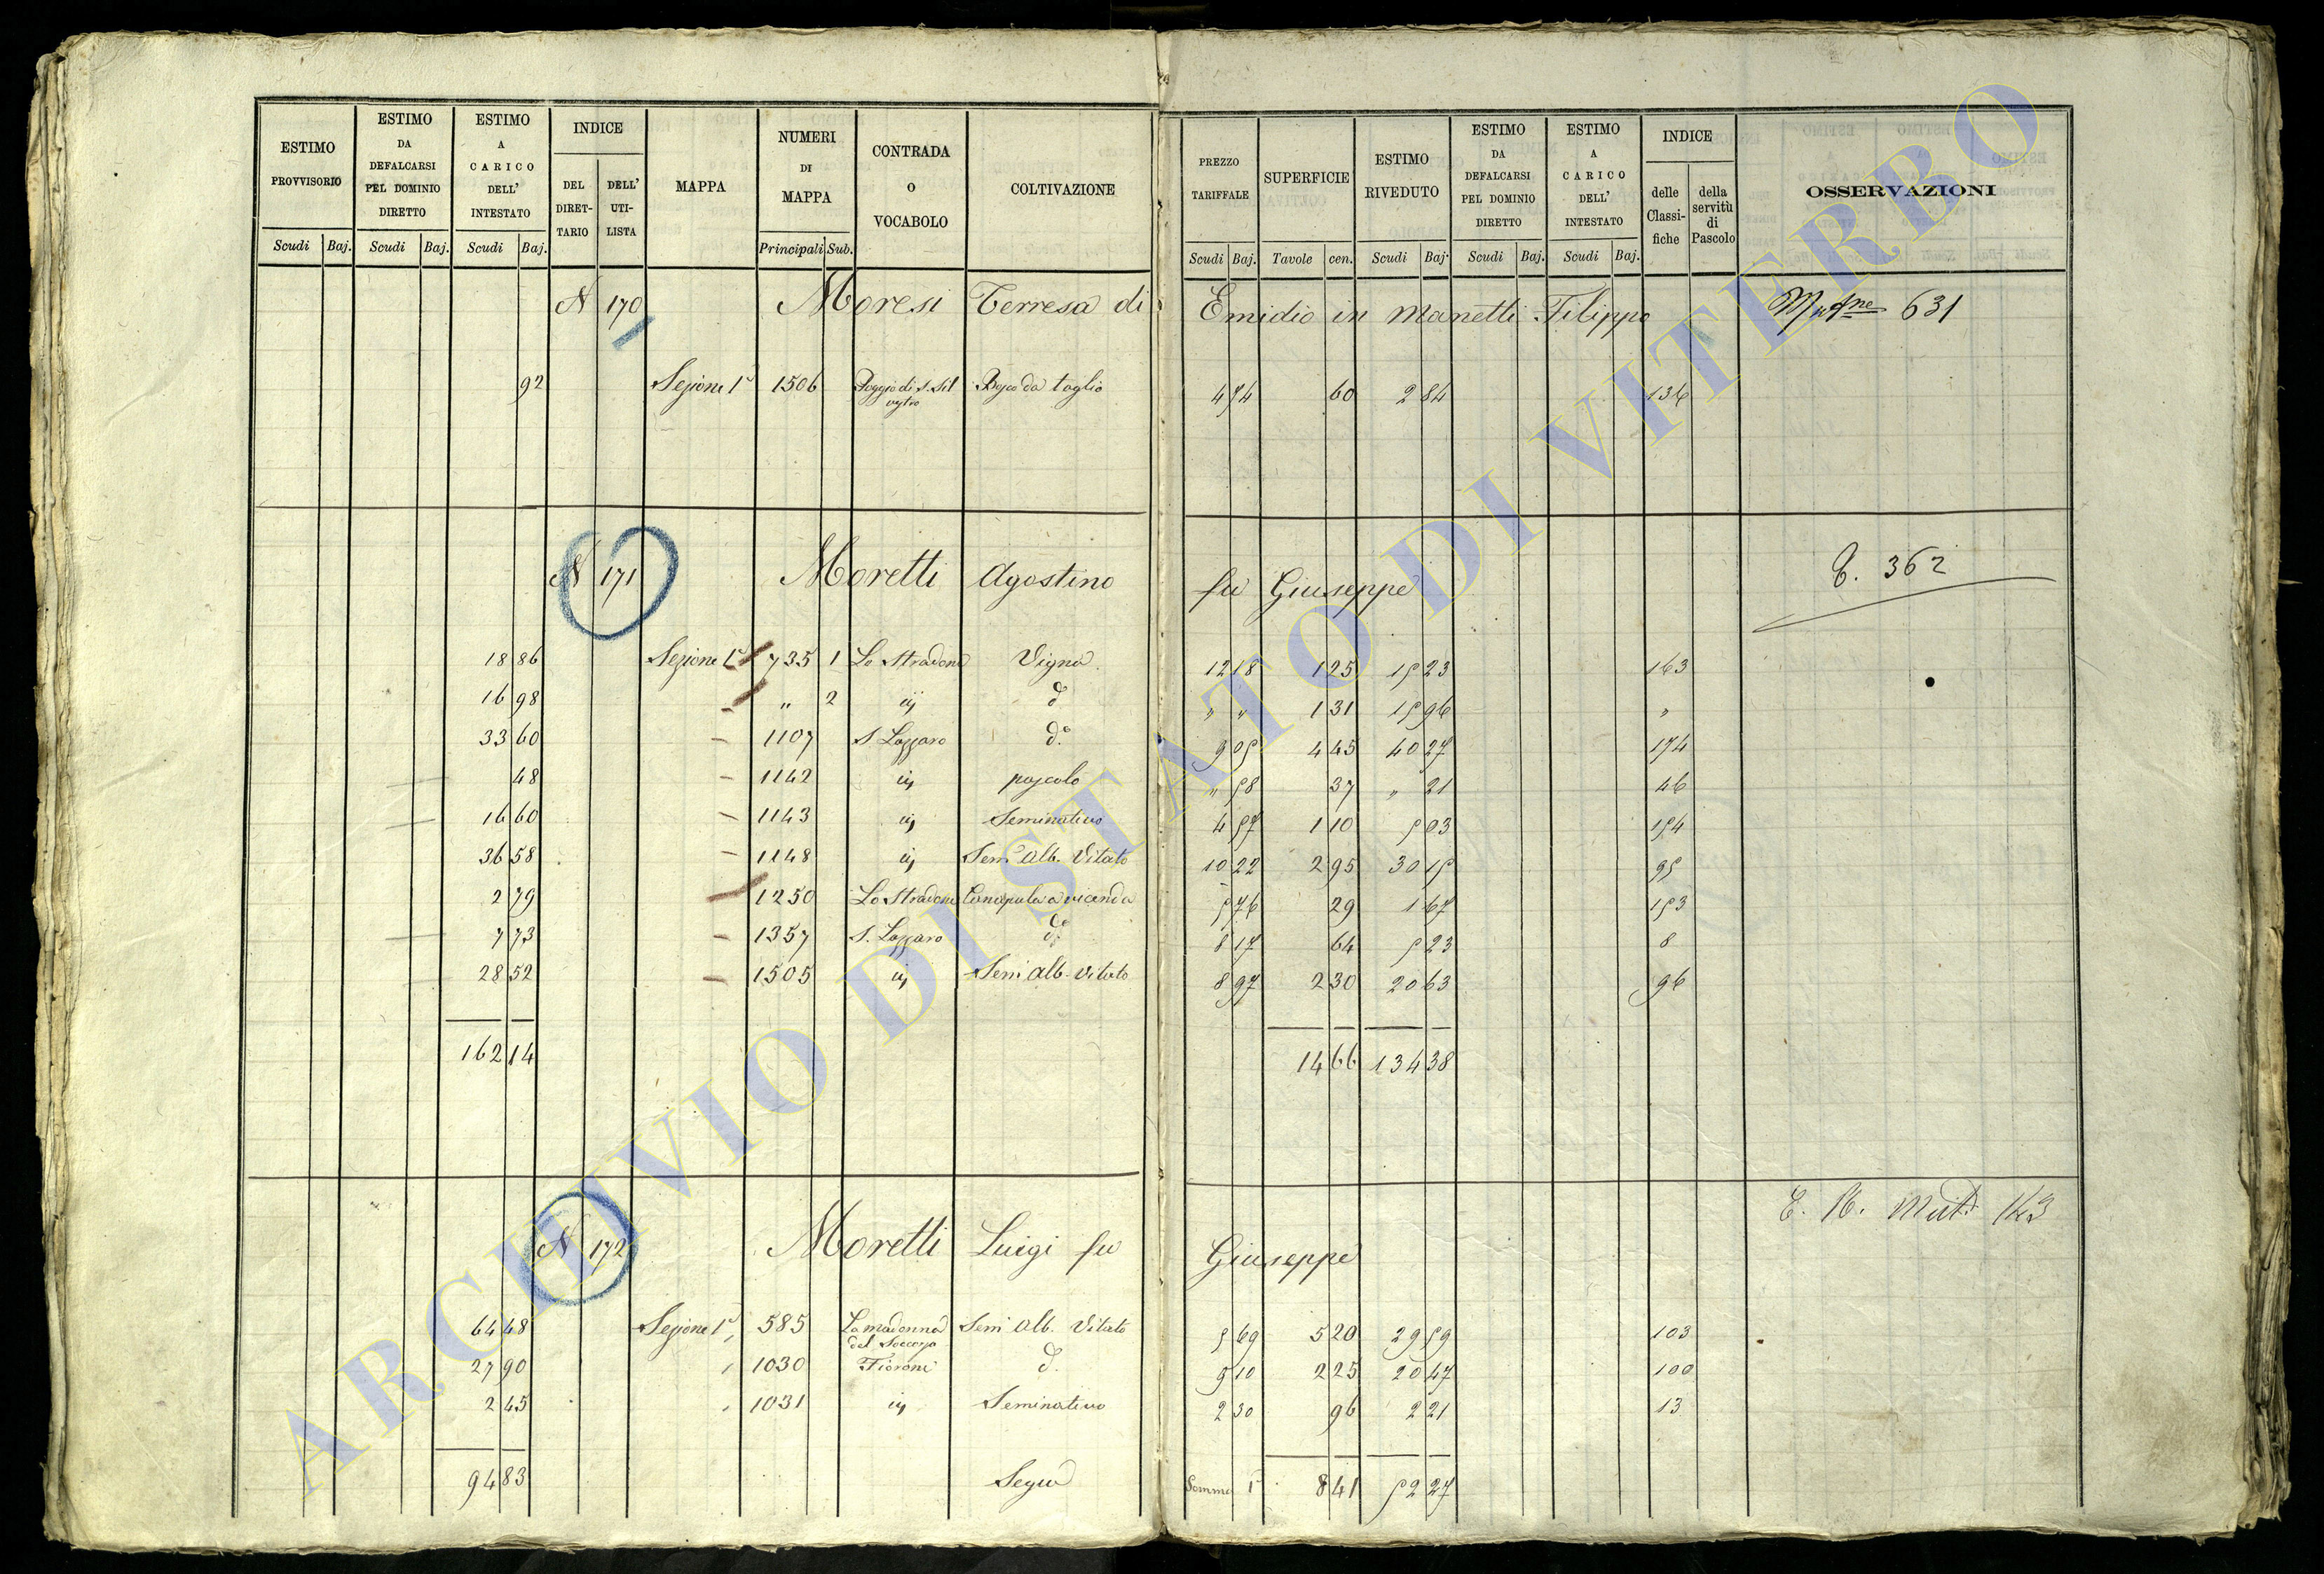 ESTIMO PROVVISORIO | ESTIMO DA DEFALCARSI PEL DOMINIO DIRETTO | ESTIMO A CARICO DELL' INTESTATO | INDICE | MAPPA | NUMERI DI MAPPA | CONTRADA O VOCABOLO | COLTIVAZIONE | PREZZO TARIFFALE | SUPERFICIE | ESTIMO RIVEDUTO | ESTIMO DA DEFALCARSI PEL DOMINIO DIRETTO | ESTIMO A CARICO DELL' INTESTATO | INDICE | OSSERVAZIONI
DEL DIRETTARIO | DELL' UTILISTA | delle Classifiche | della servitù di Pascolo
Scudi Baj. | Scudi Baj. | Scudi Baj. | Principali Sub. | Scudi Baj. | Tavole cen. | Scudi Baj. | Scudi Baj. | Scudi Baj.
N 170 Moresi Terresa di Emidio in Manetti Filippo 631
92 Sezione 1ª 1506 Poggio di S. Silvestro Bosco da taglio 4 74 60 2 84 136
N 171 Moretti Agostino fu Giuseppe E. 362
18 86 Sezione 1ª 735 1 Lo Stradone Vigna 12 18 1 25 15 23 163
16 98 " 2 iij d " " 1 31 15 96 "
33 60 1107 S Lazzaro d.º 9 05 4 45 40 27 174
48 1142 iij pascolo " 58 37 " 21 46
16 60 1143 iij Seminativo 4 57 1 10 5 03 154
36 58 1148 iij Sem Alb. Vitato 10 22 2 95 30 15 95
2 79 1250 Lo Stradone Canapula a vicenda 5 76 29 1 67 153
7 73 1357 S. Lazzaro d.º 8 17 64 5 23 8
28 52 1505 iij Sem Alb. Vitato 8 97 2 30 20 63 96
162 14 14 66 134 38
N 172 Moretti Luigi fu Giuseppe E. R. Mut. 143
64 48 Sezione 1ª 585 La madonna del Soccorso Sem Alb. Vitato 5 69 5 20 29 59 103
27 90 1030 Fiorone d. 9 10 2 25 20 47 100
2 45 1031 iij Seminativo 2 30 96 2 21 13
94 83 Segue Somma 8 41 52 27
ARCHIVIO DI STATO DI VITERBO